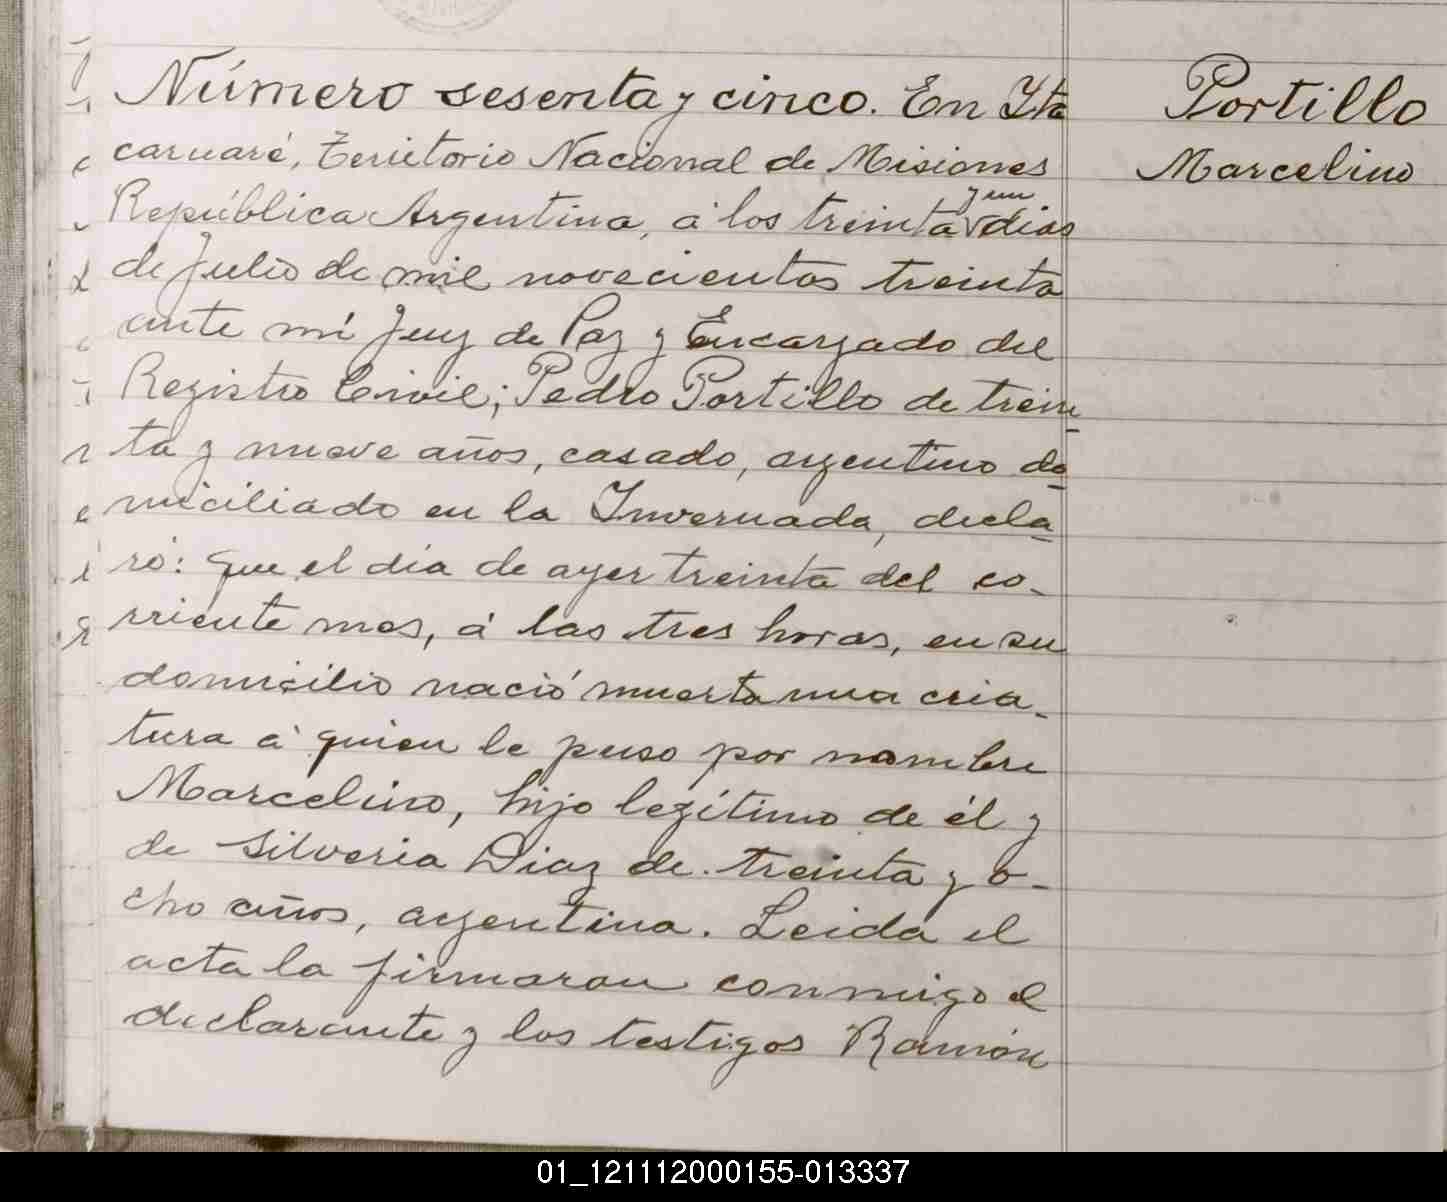 Número sesenta y cinco. En Yta
caruaré, Territorio Nacional de Misiones
República Argentina, á los treinta y un dias
de Julio de mil novecientos treinta
ante mí Juez de Paz y Encargado del
Registro Civil; Pedro Portillo de trein_
ta y nueve años, casado, argentino do_
miciliado en la Invernada, decla_
ró: que el dia de ayer treinta del co_
rriente mes, á las tres horas, en su
domicilio nació muerta una cria_
tura á quien le puso por nombre
Marcelino, hijo legítimo de él y
de Silveria Diaz de treinta y o_
cho años, argentina. Leida el
acta la firmaron conmigo el
declarante y los testigos Ramón
Portillo
Marcelino
01_121112000155-013337